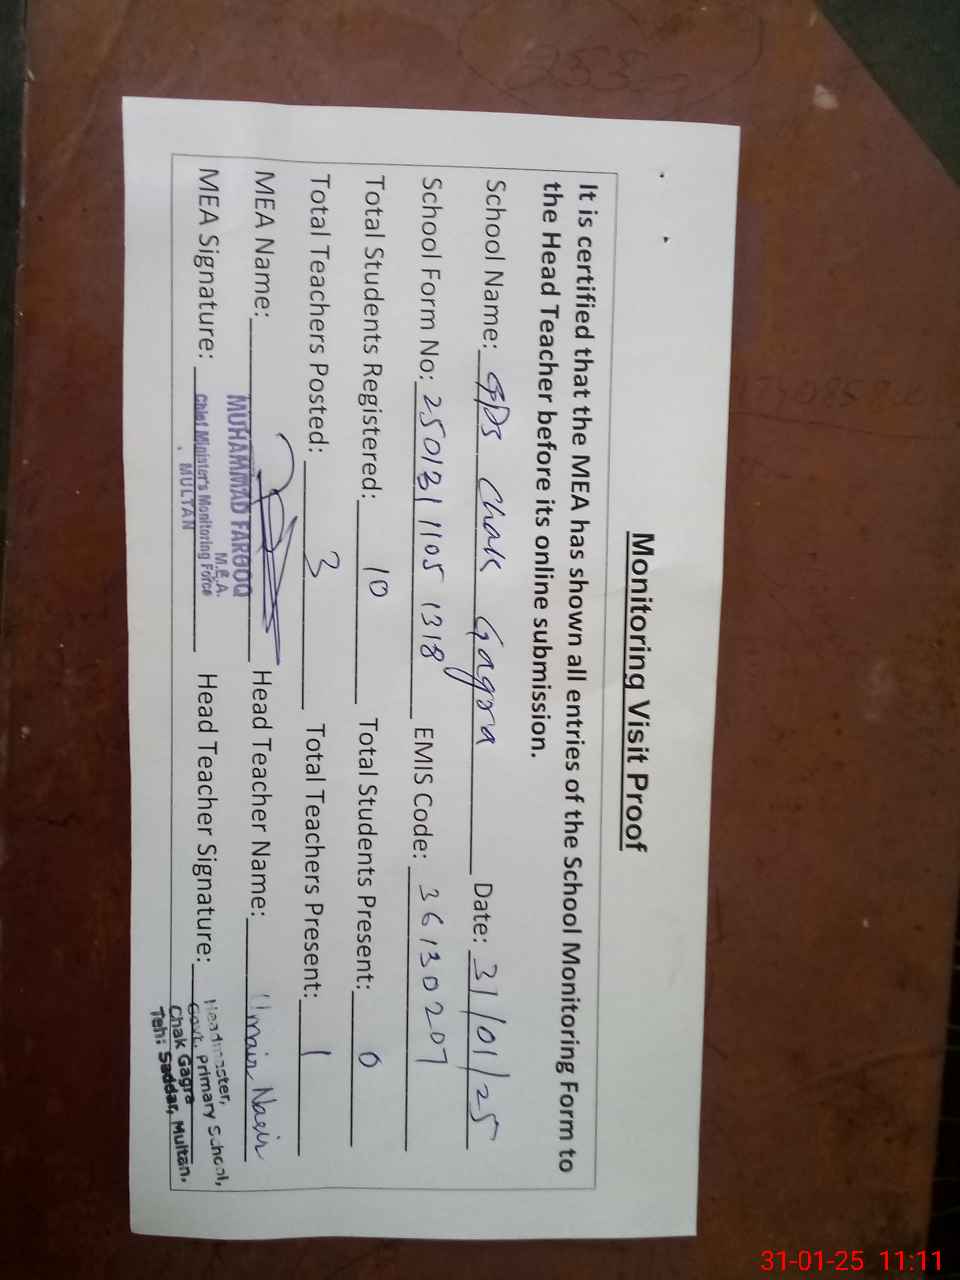 Monitoring Visit Proof
It is certified that the MEA has shown all entries of the School Monitoring Form to
the Head Teacher before its online submission.
School Name: GPS Chak Gagra Date: 31/01/25
School Form No: 250131 1105 1318 EMIS Code: 36130207
Total Students Registered: 10 Total Students Present: 0
Total Teachers Posted: 3 Total Teachers Present: 1
MEA Name: Head Teacher Name: Umair Nasir
MUHAMMAD FAROOQ
M.E.A.
MEA Signature: Head Teacher Signature:
Chief Minister's Monitoring Force
MULTAN
Headmaster,
Govt. Primary School,
Chak Gagra
Teh: Saddar, Multan.
31-01-25 11:11